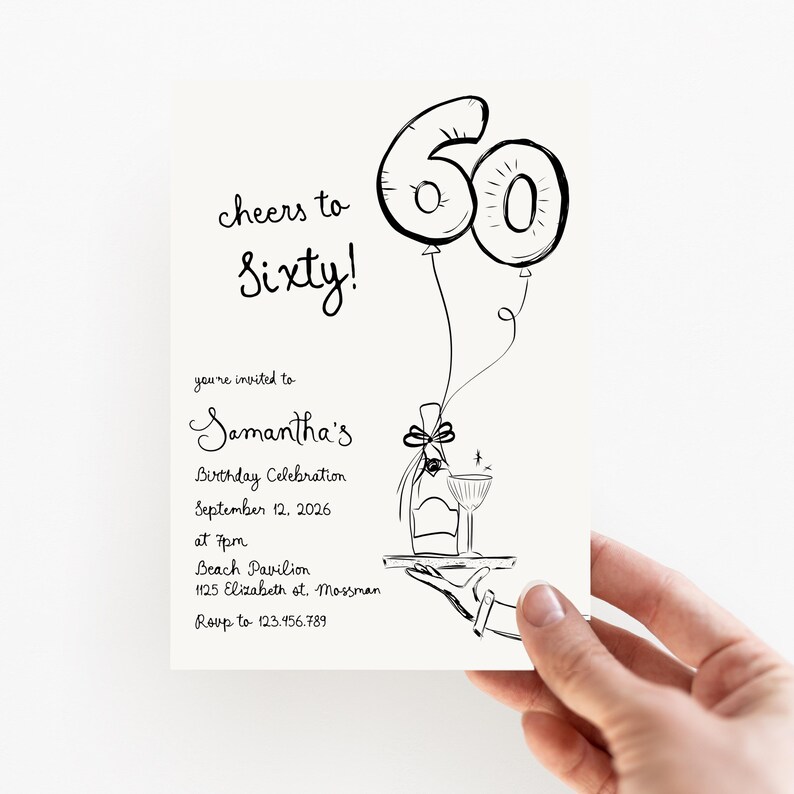 60
cheers to
Sixty!
you're invited to
Samantha's
Birthday Celebration
September 12, 2026
at 7pm
Beach Pavilion
1125 Elizabeth st, Mossman
Rsvp to 123.456.789